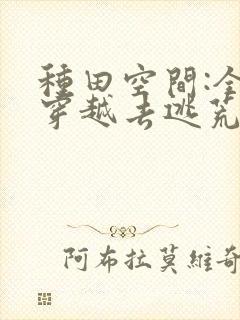 種田空間:全
穿越去逃荒
阿布拉莫維奇